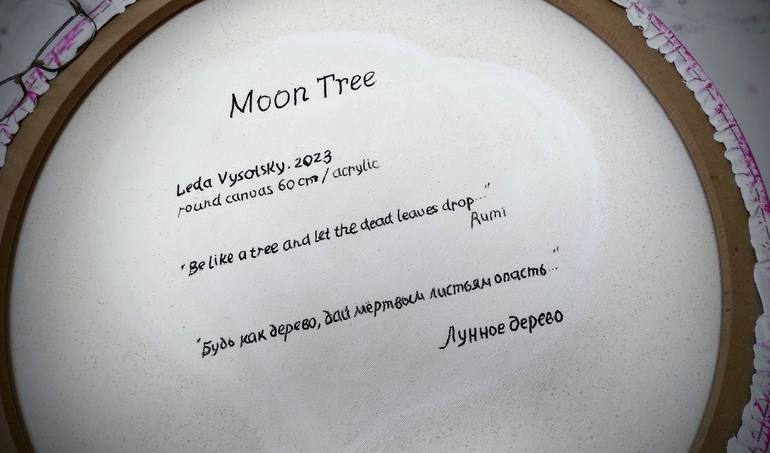 Moon Tree
Leda Vysotsky. 2023
round canvas 60 cm / acrylic
"Be like a tree and let the dead leaves drop..."
Rumi
"Будь как дерево, дай мёртвым листьям опасть..."
Лунное дерево